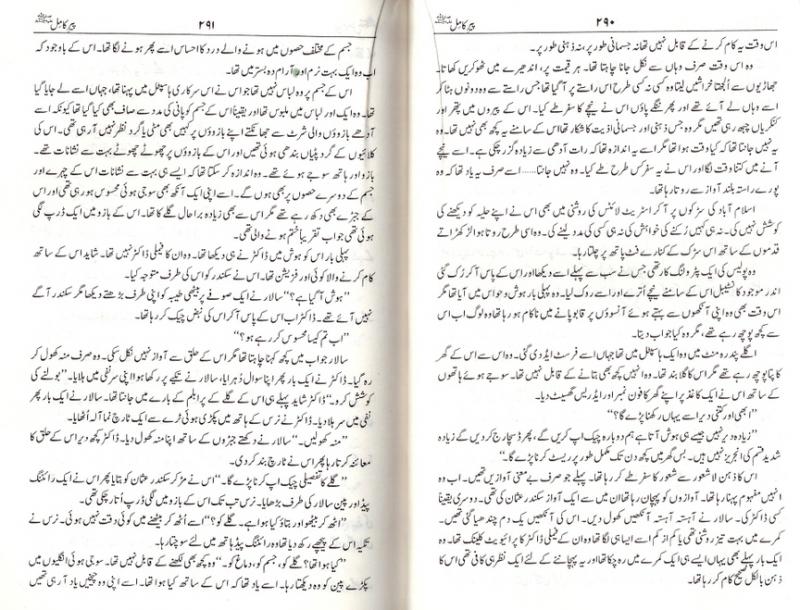 ۲۹۰
پیر کامل
اس وقت یہ کام کرنے کے قابل نہیں تھا نہ جسمانی طور پر، نہ ذہنی طور پر۔
وہ اس وقت صرف وہاں سے نکل جانا چاہتا تھا۔ ہر قیمت پر، اندھیرے میں ٹھوکریں کھاتا۔
جھاڑیوں سے اُلجھتا خراشیں لیتا وہ کسی نہ کسی طرح اس راستے پر آ گیا تھا جس راستے سے وہ دونوں ہٹا کر
اسے وہاں لے آئے تھے اور پھر ننگے پاؤں اس نے نیچے کا سفر طے کیا۔ اس کے پیروں میں پتھر اور
کنکریاں چبھ رہی تھیں مگر وہ جس ذہنی اور جسمانی اذیت کا شکار تھا اس کے سامنے یہ کچھ بھی نہیں تھا۔ وہ
یہ نہیں جانتا تھا کہ کیا وقت ہوا تھا مگر اسے یہ اندازہ تھا کہ رات آدھی سے زیادہ گزر چکی ہے۔ اسے نیچے
آنے میں کتنا وقت لگا اور اس نے یہ سفر کس طرح طے کیا۔ وہ نہیں جانتا...... اسے صرف یہ یاد تھا کہ وہ
پورے راستہ بلند آواز سے روتا رہا تھا۔
اسلام آباد کی سڑکوں پر آ کر اسٹریٹ لائٹس کی روشنی میں بھی اس نے اپنے حلیہ کو دیکھنے کی
کوشش نہیں کی۔ نہ ہی کہیں رُکنے کی خواہش کی نہ ہی کسی کی مدد لینے کی۔ وہ اسی طرح روتا ہوا لڑکھڑاتے
قدموں کے ساتھ اس سڑک کے کنارے فٹ پاتھ پر چلتا رہا۔
وہ پولیس کی ایک پٹرولنگ کار تھی جس نے سب سے پہلے اسے دیکھا اور اس کے پاس آ کر رُک گئی
اندر موجود کانسٹیبل اس کے سامنے نیچے اُترے اور اسے روک لیا۔ وہ پہلی بار ہوش و حواس میں آیا تھا مگر
اس وقت بھی وہ اپنی آنکھوں سے بہتے ہوئے آنسوؤں پر قابو پانے میں ناکام ہو رہا تھا وہ لوگ اب اس
سے کچھ پوچھ رہے تھے، مگر وہ کیا جواب دیتا۔
اگلے پندرہ منٹ میں وہ ایک ہاسپٹل میں تھا جہاں اسے فرسٹ ایڈ دی گئی۔ وہ اس سے اس کے گھر
کا پتا پوچھ رہے تھے مگر اس کا گلا بند تھا۔ وہ انہیں کچھ بھی بتانے کے قابل نہیں تھا۔ سوجے ہوئے ہاتھوں
کے ساتھ اس نے ایک کاغذ پر اپنے گھر کا فون نمبر اور ایڈریس گھسیٹ دیا۔
"ابھی اور کتنی دیر اسے یہاں رکھنا پڑے گا؟"
"زیادہ دیر نہیں جیسے ہی ہوش آتا ہے ہم دوبارہ چیک اپ کریں گے، پھر ڈسچارج کر دیں گے زیادہ
شدید قسم کی انجریز نہیں ہیں۔ بس گھر میں کچھ دن تک مکمل طور پر ریسٹ کرنا پڑے گا۔"
اس کا ذہن لاشعور سے شعور کا سفر طے کر رہا تھا۔ پہلے جو صرف بے معنی آوازیں تھیں۔ اب وہ
انہیں مفہوم پہنا رہا تھا۔ آوازوں کو پہچان رہا تھا ان میں سے ایک آواز سکندر عثمان کی تھی۔ دوسری یقیناً
کسی ڈاکٹر کی۔ سالار نے آہستہ آہستہ آنکھیں کھول دیں۔ اس کی آنکھیں یک دم چندھیا گئی تھیں۔
کمرے میں بہت تیز روشنی تھی یا کم از کم اسے ایسا ہی لگا تھا وہ ان کے فیملی ڈاکٹر کا پرائیویٹ کلینک تھا۔ وہ
ایک بار پہلے بھی یہاں ایسے ہی ایک کمرے میں رہ چکا تھا اور یہ پہچاننے کے لئے ایک نظر ہی کافی تھی اس کا
ذہن بالکل صحیح کام کر رہا تھا۔
پیر کامل
۲۹۱
جسم کے مختلف حصوں میں ہونے والے درد کا احساس اسے پھر ہونے لگا تھا۔ اس کے باوجود کہ
اب وہ ایک بہت نرم اور آرام دہ بستر میں تھا۔
اس کے جسم پر وہ لباس نہیں تھا جو اس نے اس سرکاری ہاسپٹل میں پہنا تھا، جہاں اسے لے جایا گیا
تھا۔ وہ ایک اور لباس میں ملبوس تھا اور یقیناً اس کے جسم کو پانی کی مدد سے صاف بھی کیا گیا تھا کیونکہ اسے
آدھے بازوؤں والی شرٹ سے جھانکتے اپنے بازوؤں پر کہیں بھی مٹی یا گرد نظر نہیں آ رہی تھی۔ اس کی
کلائیوں کے گرد پٹیاں بندھی ہوئی تھیں اور اس کے بازوؤں پر چھوٹے چھوٹے بہت سے نشانات تھے۔
بازو اور ہاتھ سوجے ہوئے تھے۔ وہ اندازہ کر سکتا تھا کہ ایسے ہی بہت سے نشانات اس کے چہرے اور
جسم کے دوسرے حصوں پر بھی ہوں گے۔ اسے اپنی ایک آنکھ بھی سوجی ہوئی محسوس ہو رہی تھی اور اس
کے جبڑے بھی دکھ رہے تھے مگر اس سے بھی زیادہ برا حال گلے کا تھا۔ اس کے بازو میں ایک ڈرپ لگی
ہوئی تھی جو اب تقریباً ختم ہونے والی تھی۔
پہلی بار اس کو ہوش میں ڈاکٹر نے ہی دیکھا تھا۔ وہ ان کا فیملی ڈاکٹر نہیں تھا۔ شاید اس کے ساتھ
کام کرنے والا کوئی اور فزیشن تھا۔ اس نے سکندر کو اس کی طرف متوجہ کیا۔
"ہوش آ گیا ہے؟" سالار نے ایک صوفے پر بیٹھی طیبہ کو اپنی طرف بڑھتے دیکھا مگر سکندر آگے
نہیں آئے تھے۔ ڈاکٹر اب اس کے پاس آ کر اس کی نبض چیک کر رہا تھا۔
"اب تم کیسا محسوس کر رہے ہو؟"
سالار جواب میں کچھ کہنا چاہتا تھا مگر اس کے حلق سے آواز نہیں نکل سکی۔ وہ صرف منہ کھول کر
رہ گیا۔ ڈاکٹر نے ایک بار پھر اپنا سوال دُہرایا، سالار نے تکیے پر رکھا ہوا اپنی سر نفی میں ہلایا۔ "بولنے کی
کوشش کرو۔" ڈاکٹر شاید پہلے ہی اس کے گلے کے پرابلم کے بارے میں جانتا تھا۔ سالار نے ایک بار پھر
نفی میں سر ہلا دیا۔ ڈاکٹر نے نرس کے ہاتھ میں پکڑی ہوئی ٹرے سے ایک ٹارچ نما آلہ اُٹھایا۔
"منہ کھولیں۔" سالار نے دکھتے جبڑوں کے ساتھ اپنا منہ کھول دیا۔ ڈاکٹر کچھ دیر اس کے حلق کا
معائنہ کرتا رہا پھر اس نے ٹارچ بند کر دی۔
"گلے کا تفصیلی چیک اپ کرنا پڑے گا۔" اس نے مڑ کر سکندر عثمان کو بتایا پھر اس نے ایک رائٹنگ
پیڈ اور پین سالار کی طرف بڑھایا۔ نرس تب تک اس کے بازو میں لگی ڈرپ اُتار چکی تھی۔
"اٹھ کر بیٹھو اور بتاؤ کیا ہوا ہے۔ گلے کو؟" اسے اُٹھ کر بیٹھنے میں کوئی دقت نہیں ہوئی۔ نرس نے
تکیہ اس کے پیچھے رکھ دیا تھا وہ رائٹنگ پیڈ ہاتھ میں لئے سوچتا رہا۔
"کیا ہوا تھا؟ گلے کو، جسم کو، دماغ کو۔" وہ کچھ بھی لکھنے کے قابل نہیں تھا۔ سوجی ہوئی انگلیوں میں
پکڑے پین کو وہ دیکھتا رہا۔ اسے یاد تھا کہ اس کے ساتھ کیا ہوا تھا۔ اسے اپنی وہ چیخیں یاد آ رہی تھیں